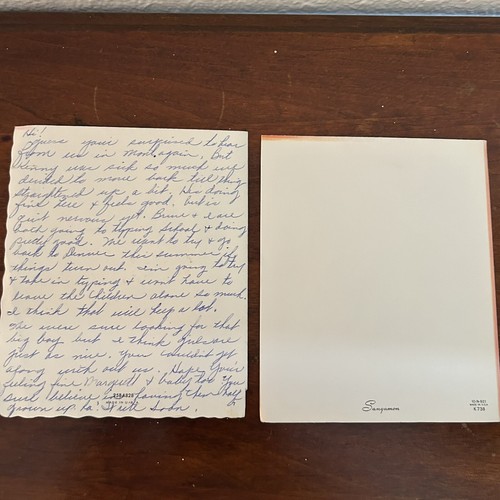 Hi!
Guess your surprised to hear
from us in Mon. again. But
was sick so much we
decided to move back till things
straightened up a bit. Hes doing
fine here & feels good. but is a
quit nervous yet. & I are
both going to typing school & doing
pretty good. We want to try & go
back to Denver this summer if
things turn out. Im going to try
& take in typing & wont have to
leave the children alone so much.
I think that will help a lot.
We were sure looking for that
big boy but I think girls are
just as nice. you couldn't get
along with out us. Hope you're
feeling fine & baby too. You
sure believe in having them half
grown up ha! Write Soon.
MADE IN U.S.A.
Sangamon
MADE IN U.S.A.